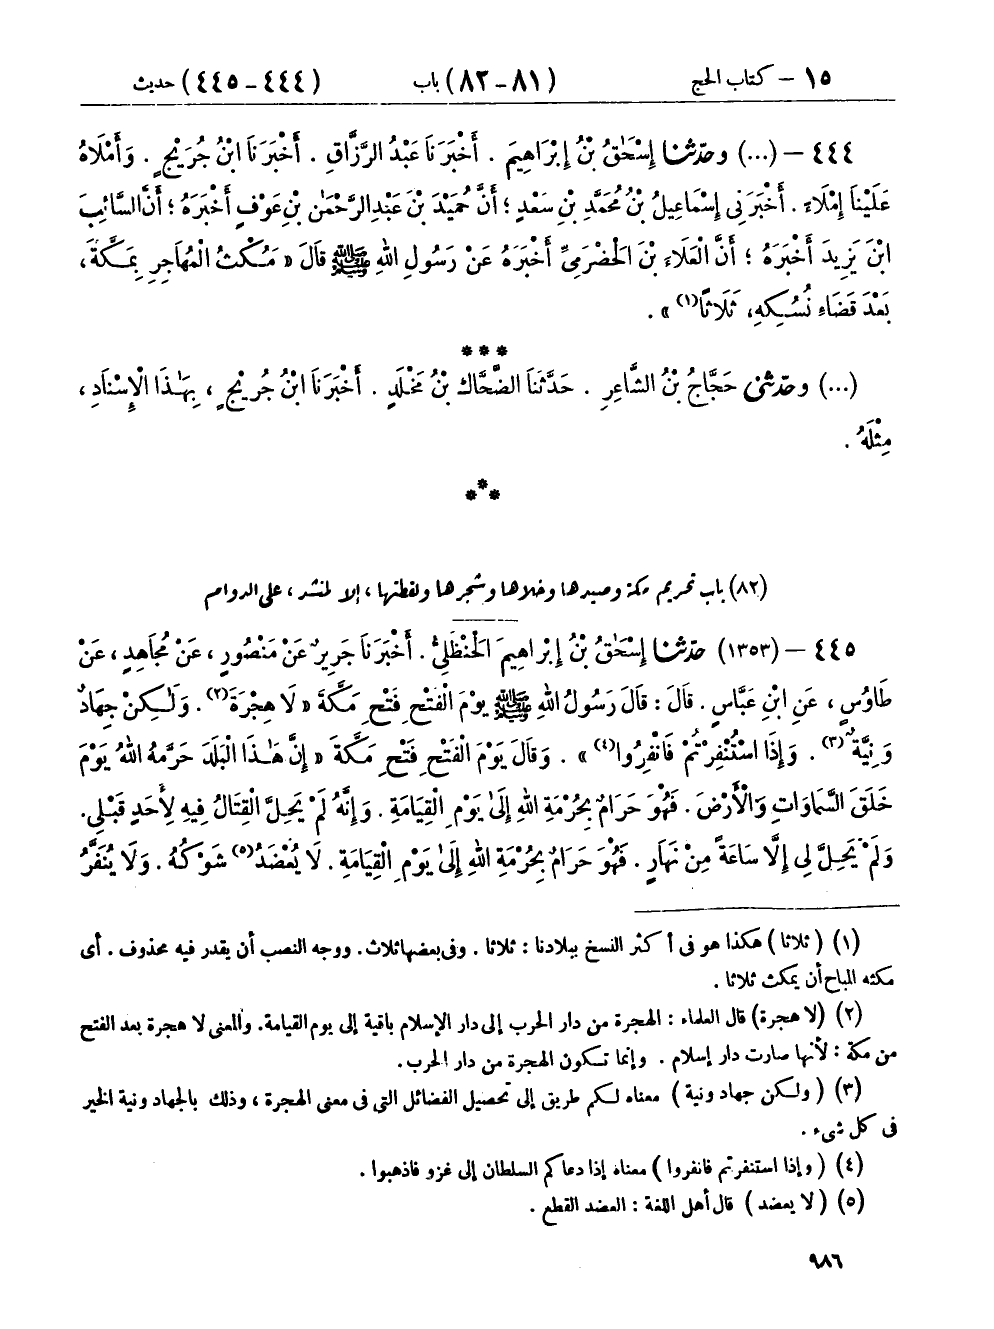 ١٥ – كتاب الحج (٨١ – ٨٢) باب (٤٤٤ – ٤٤٥) حديث
٤٤٤ – (...) وحَدَّثَنَا إِسْحَٰقُ بْنُ إِبْرَاهِيمَ . أَخْبَرَنَا عَبْدُ الرَّزَّاقِ . أَخْبَرَنَا ابْنُ جُرَيْجٍ . وَأَمْلَاهُ
عَلَيْنَا إِمْلَاءً . أَخْبَرَنِي إِسْمَاعِيلُ بْنُ مُحَمَّدِ بْنِ سَعْدٍ ؛ أَنَّ حُمَيْدَ بْنَ عَبْدِ الرَّحْمٰنِ بْنِ عَوْفٍ أَخْبَرَهُ ؛ أَنَّ السَّائِبَ
ابْنَ يَزِيدَ أَخْبَرَهُ ؛ أَنَّ الْعَلَاءَ بْنَ الْحَضْرَمِيِّ أَخْبَرَهُ عَنْ رَسُولِ اللهِ ﷺ قَالَ « مَكْثُ الْمُهَاجِرِ بِمَكَّةَ ،
بَعْدَ قَضَاءِ نُسُكِهِ ، ثَلَاثًا(١) » .
***
(...) وحَدَّثَنِي حَجَّاجُ بْنُ الشَّاعِرِ . حَدَّثَنَا الضَّحَّاكُ بْنُ مَخْلَدٍ . أَخْبَرَنَا ابْنُ جُرَيْجٍ ، بِهَٰذَا الْإِسْنَادِ ،
مِثْلَهُ .
***
(٨٢) باب تحريم مكة وصيدها وخلاها وشجرها ولقطتها ، إلا لمنشد ، على الدوام
٤٤٥ – (١٣٥٣) حَدَّثَنَا إِسْحَٰقُ بْنُ إِبْرَاهِيمَ الْحَنْظَلِيُّ . أَخْبَرَنَا جَرِيرٌ عَنْ مَنْصُورٍ ، عَنْ مُجَاهِدٍ ، عَنْ
طَاوُسٍ ، عَنِ ابْنِ عَبَّاسٍ . قَالَ : قَالَ رَسُولُ اللهِ ﷺ يَوْمَ الْفَتْحِ فَتْحِ مَكَّةَ « لَا هِجْرَةَ(٢) . وَلَٰكِنْ جِهَادٌ
وَنِيَّةٌ(٣) . وَإِذَا اسْتُنْفِرْتُمْ فَانْفِرُوا(٤) » . وَقَالَ يَوْمَ الْفَتْحِ فَتْحِ مَكَّةَ « إِنَّ هَٰذَا الْبَلَدَ حَرَّمَهُ اللهُ يَوْمَ
خَلَقَ السَّمَاوَاتِ وَالْأَرْضَ . فَهُوَ حَرَامٌ بِحُرْمَةِ اللهِ إِلَىٰ يَوْمِ الْقِيَامَةِ . وَإِنَّهُ لَمْ يَحِلَّ الْقِتَالُ فِيهِ لِأَحَدٍ قَبْلِي .
وَلَمْ يَحِلَّ لِي إِلَّا سَاعَةً مِنْ نَهَارٍ . فَهُوَ حَرَامٌ بِحُرْمَةِ اللهِ إِلَىٰ يَوْمِ الْقِيَامَةِ . لَا يُعْضَدُ(٥) شَوْكُهُ . وَلَا يُنَفَّرُ
(١) ( ثلاثا ) هكذا هو فى أكثر النسخ ببلادنا : ثلاثا . وفى بعضها ثلاث . ووجه النصب أن يقدر فيه محذوف . أى
مكثه المباح أن يمكث ثلاثا .
(٢) ( لا هجرة ) قال العلماء : الهجرة من دار الحرب إلى دار الإسلام باقية إلى يوم القيامة . والمعنى لا هجرة بعد الفتح
من مكة : لأنها صارت دار إسلام . وإنما تكون الهجرة من دار الحرب .
(٣) ( ولكن جهاد ونية ) معناه لكم طريق إلى تحصيل الفضائل التى فى معنى الهجرة ، وذلك بالجهاد ونية الخير
فى كل شىء .
(٤) ( وإذا استنفرتم فانفروا ) معناه إذا دعاكم السلطان إلى غزو فاذهبوا .
(٥) ( لا يعضد ) قال أهل اللغة : العضد القطع .
٩٨٦